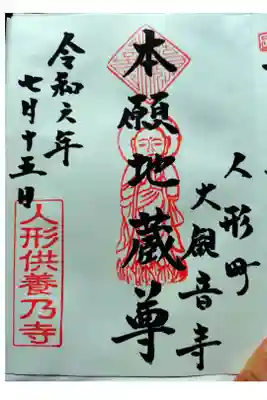 人形町
大観音寺
本願地蔵尊
令和元年
七月十五日
人形供養乃寺